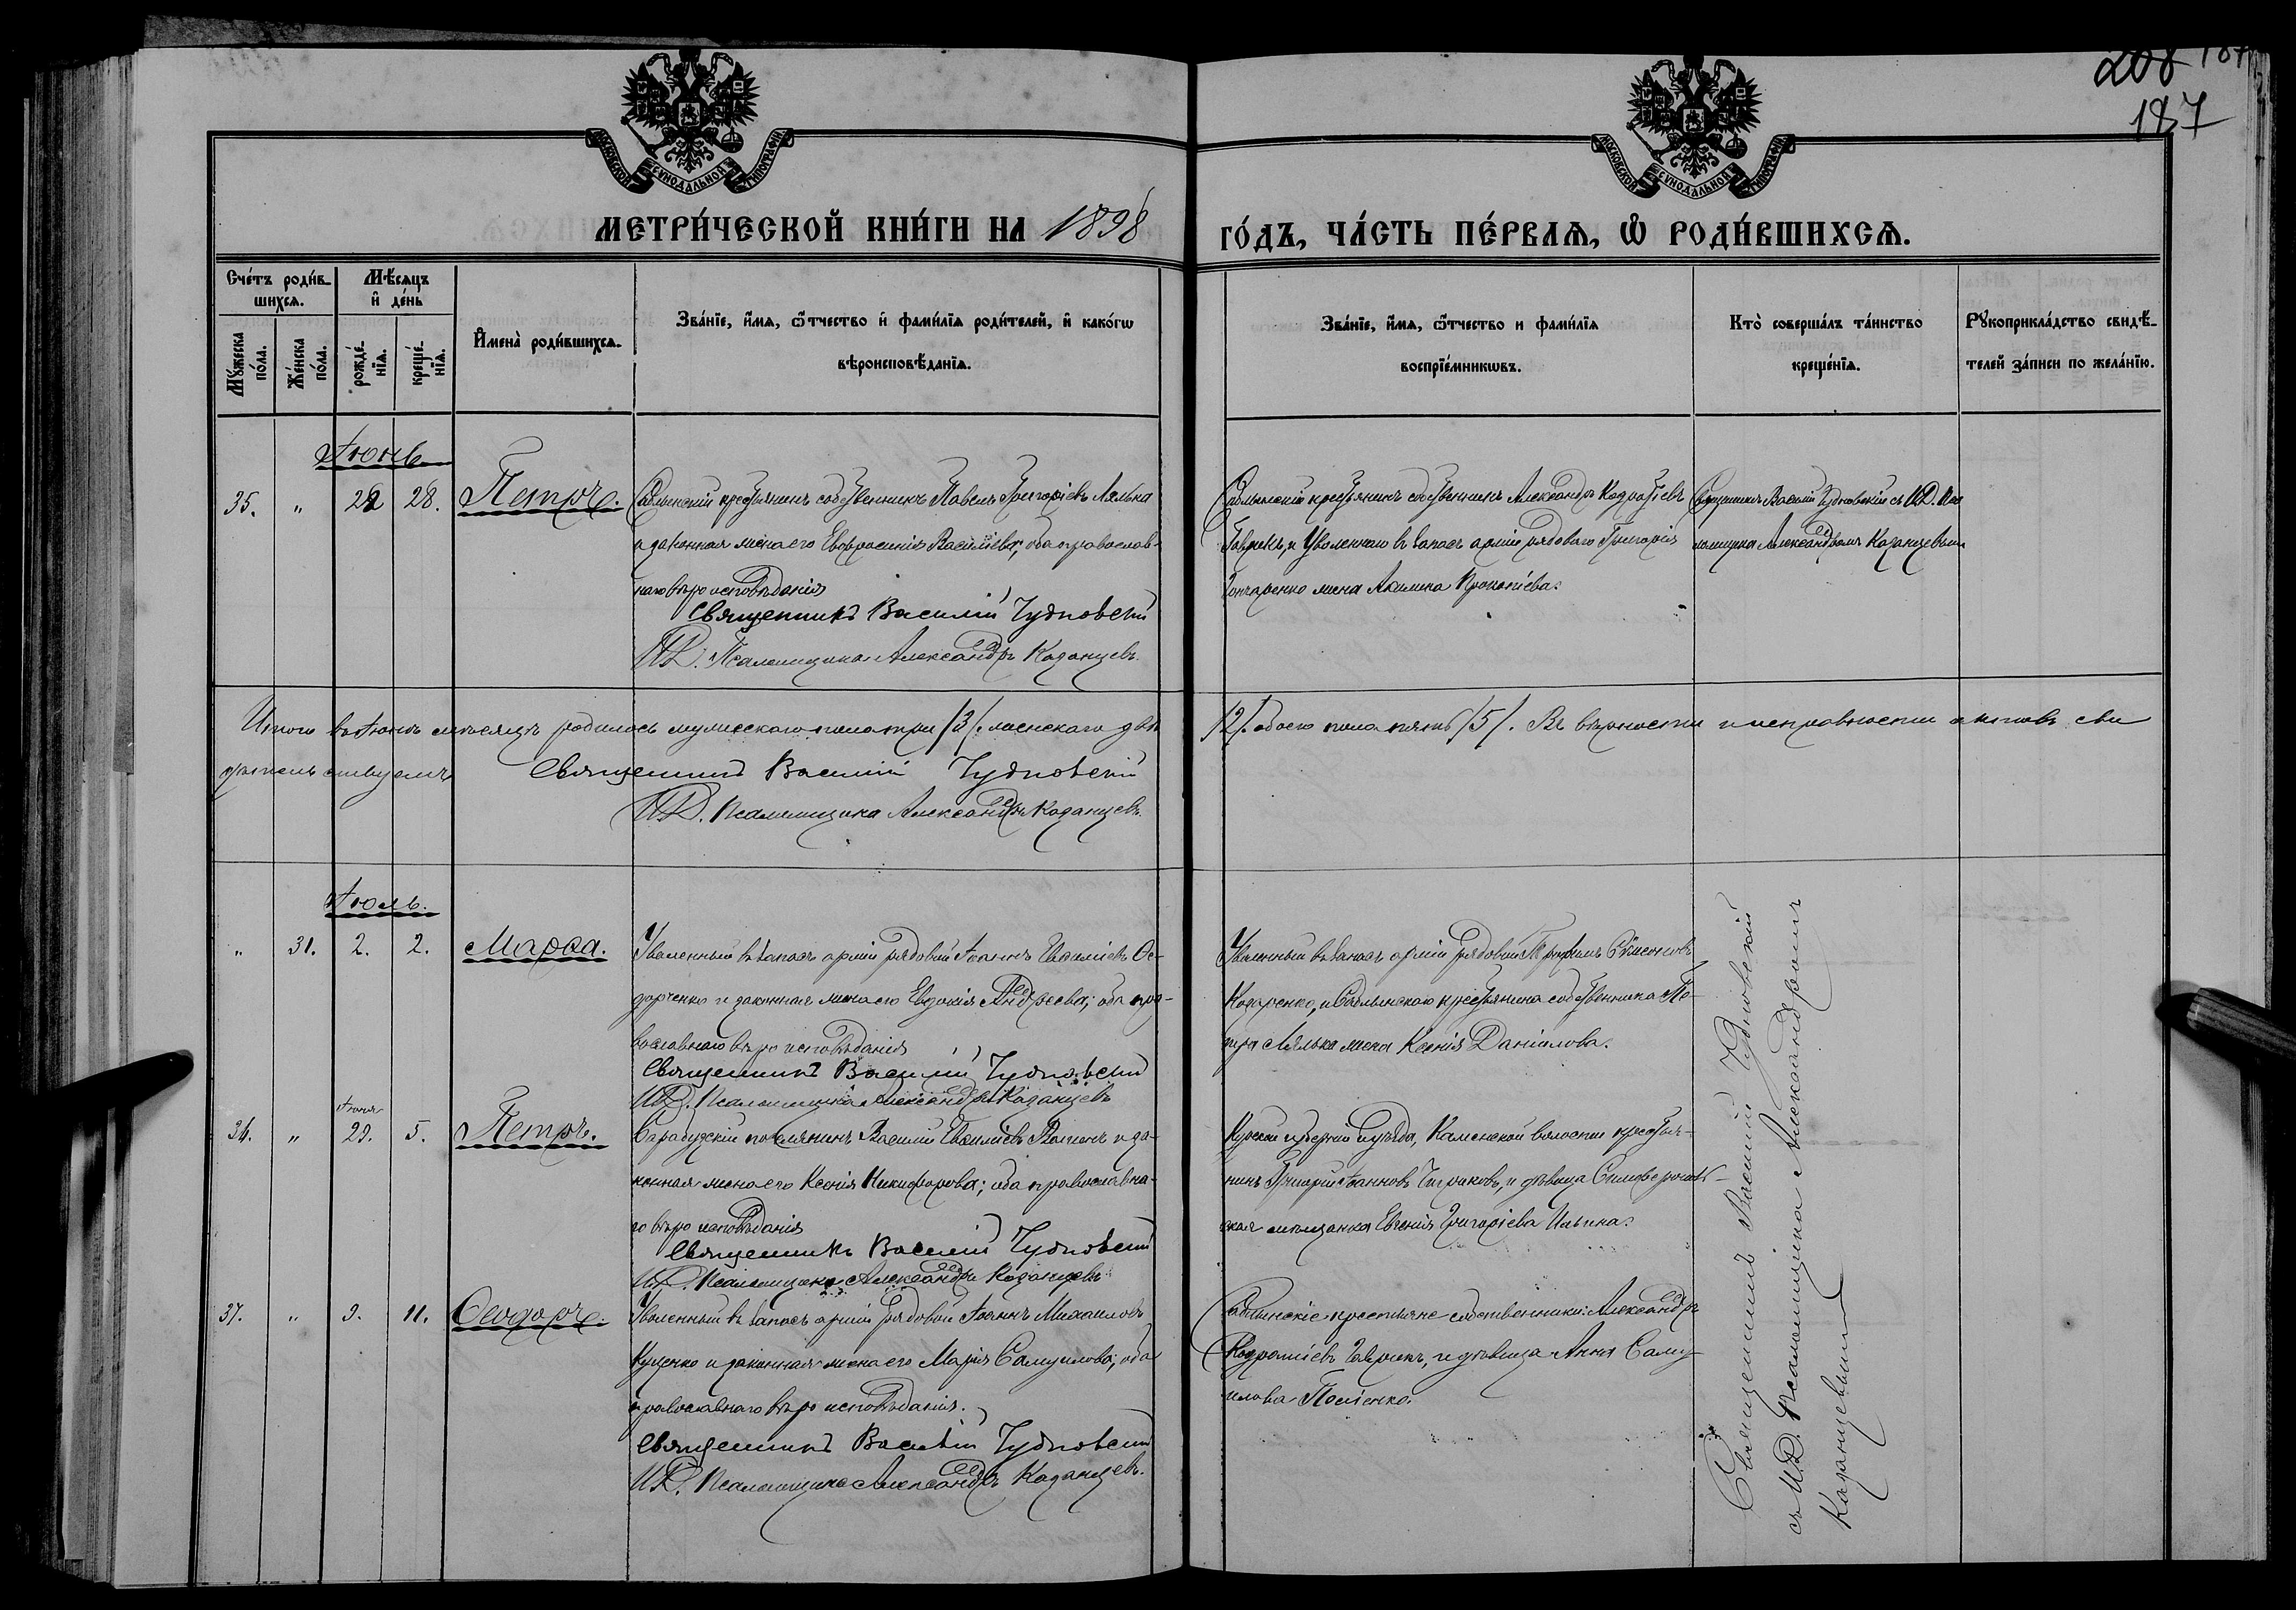 208 187
187
МОСКОВСКОЙ СѴНОДАЛЬНОЙ ТИПОГРАФІИ
МОСКОВСКОЙ СѴНОДАЛЬНОЙ ТИПОГРАФІИ
МЕТРИ́ЧЕСКОЙ КНИ́ГИ НА 1898 ГО́ДЪ, ЧА́СТЬ ПЕ́РВАѦ, Ѽ РОДИ́ВШИХСѦ.
Сче́тъ роди́в-
шихсѧ.
Мꙋ́жеска
по́ла.
Же́нска
по́ла.
Мѣ́сѧцъ
и҆ де́нь
рожде́-
нїѧ.
креще́-
нїѧ.
И҆мена̀ роди́вшихсѧ.
Зва́нїе, и҆́мѧ, ѻ҆́тчество и҆ фами́лїѧ роди́телей, и҆ како́гѡ
вѣроисповѣ́данїѧ.
Зва́нїе, и҆́мѧ, ѻ҆́тчество и фами́лїѧ
воспрїе́мникѡвъ.
Кто̀ соверша́лъ та́инство
креще́нїѧ.
Рꙋкоприкла́дство свидѣ́-
телей за́писи по жела́нїю.
Іюнь
35. " 22 28. Петръ.
Саблынскій крестьянинъ собственникъ Павелъ Григоріевъ Лялька
и законная жена его Евфросинія Василіева; оба православ-
наго вѣроисповѣданія
Священникъ Василій Чудновскій
И.Д. Псаломщика Александръ Казанцевъ.
Саблынскій крестьянинъ собственникъ Александръ Кодратіевъ
Гаврикъ, и Уволеннаго въ запасъ арміи рядоваго Григорія
Гончаренко жена Акилина Прокопіева.
Священникъ Василій Чудновскій съ И.Д. Пса
ломщика Александромъ Казанцевымъ
Итого въ Іюнѣ мѣсяцѣ родилось мужескаго пола три /3/. женскаго двѣ /2/. обоего пола пять /5/. Въ вѣрности и исправности актовъ сви
дѣтельствуемъ
Священникъ Василій Чудновскій
И.Д. Псаломщика Александръ Казанцевъ.
Іюль.
" 31. 2. 2. Марѳа.
Уволенный въ запасъ арміи рядовой Іоаннъ Евѳиміевъ Ос-
дорченко и законная жена его Евдокія Андреева; оба пра-
вославнаго вѣроисповѣданія
Священникъ Василій Чудновскій
И.Д. Псаломщика Александръ Казанцевъ
Уволенный въ запасъ арміи рядовой Трофимъ Сѵмеоновъ
Кодренко, и Саблынскаго крестьянина собственника Пе-
тра Лялька жена Ксенія Даніилова.
Іюня
36. " 29. 5. Петръ.
Сарабузскій поселянинъ Василій Евѳиміевъ и за-
конная жена его Ксенія Никифорова; оба православна-
го вѣроисповѣданія
Священникъ Василій Чудновскій
И.Д. Псаломщика Александръ Казанцевъ
Курской губерніи и уѣзда, Каменской волости крестья-
нинъ Григорій Іоанновъ Чириковъ, и дѣвица Симферополь-
ская мѣщанка Евгенія Григоріева Ильина.
37. " 9. 11. Ѳеодоръ.
Уволенный въ запасъ арміи рядовой Іоаннъ Михаиловъ
Куценко и законная жена его Марія Самуилова; оба
православнаго вѣроисповѣданія.
Священникъ Василій Чудновскій
И.Д. Псаломщика Александръ Казанцевъ.
Саблынскіе крестьяне собственники: Александръ
Кодратіевъ Гаврикъ, и дѣвица Анна Саму-
илова
Священникъ Василій Чудновскій
съ И.Д. Псаломщика Александромъ
Казанцевымъ